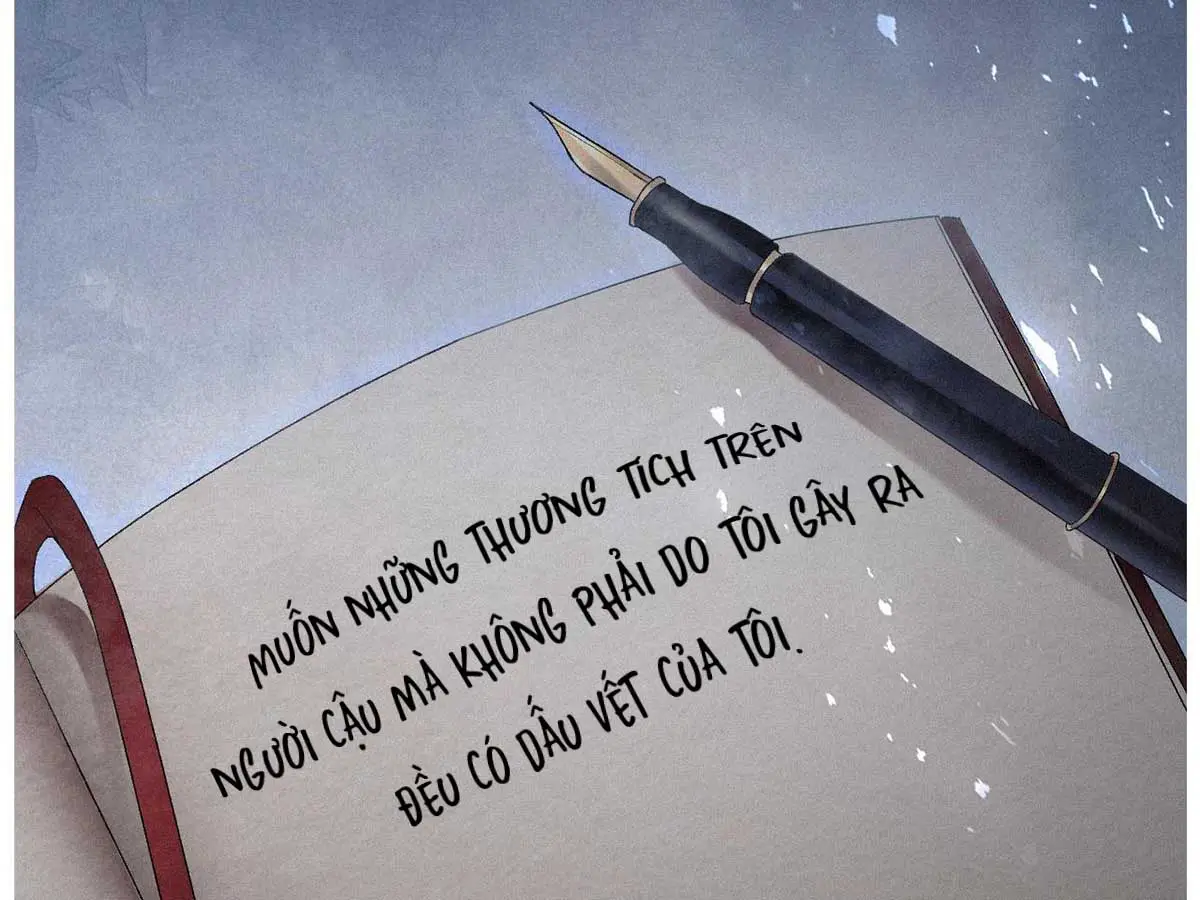 MUỐN NHỮNG THƯƠNG TÍCH TRÊN
NGƯỜI CẬU MÀ KHÔNG PHẢI DO TÔI GÂY RA
ĐỀU CÓ DẤU VẾT CỦA TÔI.